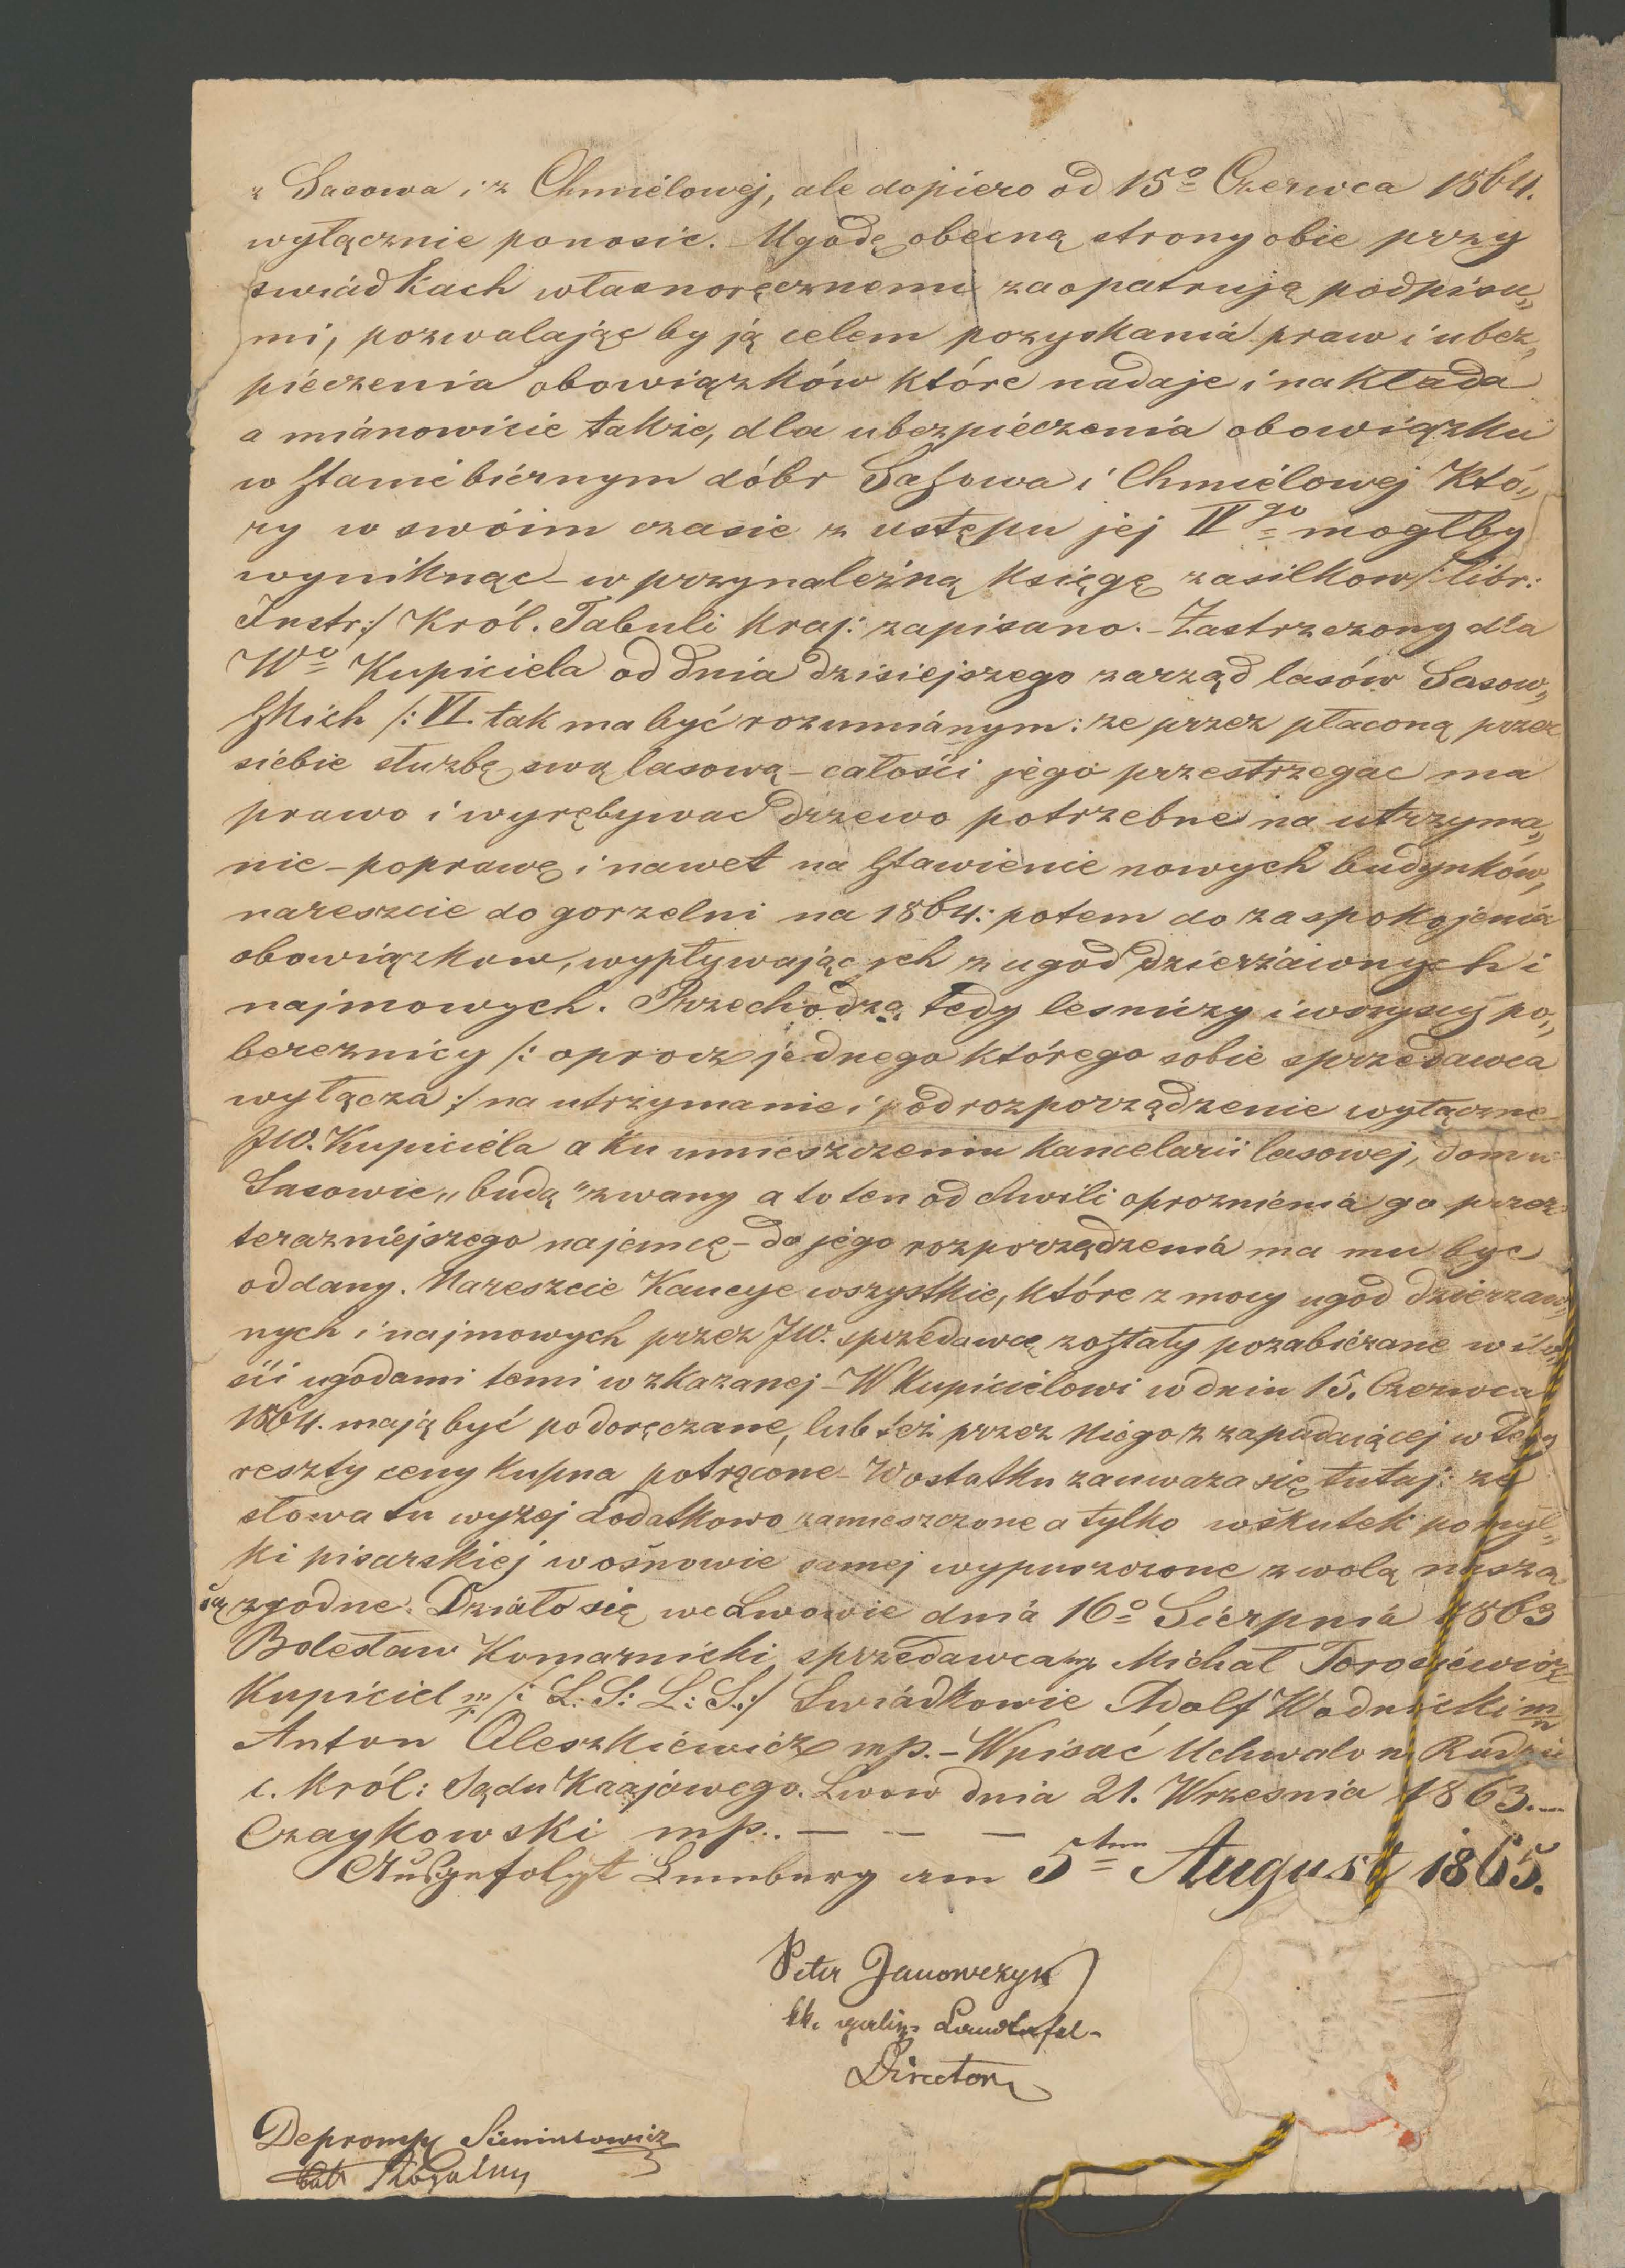 z Sasowa i z Chmiélowéj, ale dopiero od 15º Czerwca 1864.
wyłącznie ponosić. Ugodę obecną strony obie przy
swiádkach własnoręcznemi zaopatrują podpisa„
mi, pozwalając by ją celem pozyskaniá praw i ubez„
piéczenia obowiązków które nadaje i nakłada
a miánowicie także, dla ubezpiéczenia obowiązku
w stanie biérnym dóbr Sasowa i Chmiélowéj któ„
ry w swóim czasie z ustępu jej IVgo mogłby
wyniknąć – w przynależną księgę zasilkow /: libr:
Instr:/ Król. Tabuli kraj: zapisano. – Zastrzeżony dla
Wº Kupiciela od dnia dzisiejszego zarząd lasów Sasow„
skich /: VI. tak ma być rozumiánym: ze przez płaconą przez
siébie służbę swą lasową – całości jego przestrzegac ma
prawo i wyrębywac drzewo potrzebne na utrzyma„
nie – poprawę i nawet na stawienie nowych budynków,
nareszcie do gorzelni na 1864: potem do zaspokojeniá
obowiązkow, wypływających z ugod dzierżáwnych i
najmowych. Przechodzą tedy lesniczy i wszyscy po„
bereznicy /: oprocz jednego którego sobie sprzedawca
wyłącza :/ na utrzymanie i pod rozporządzenie wyłączne
JW. Kupiciéla a ku umieszczeniu kancelarii lasowej, dom w
Sasowie „budą” zwany a to ten od chwili oprozniéniá go przez
terazniéjszego najemcę – do jego rozporządzeniá ma mu być
oddany. Nareszcie Kaucye wszystkie, które z mocy ugod dzierzaw„
nych i najmowych przez JW. sprzedawcę zostały pozabiérane w ilo„
ści ugódami temi wzkazanej – W Kupicielowi w dniu 15. Czerwca
1864. mają być podoręczane, lub też przez Niego z zapadającej w tedy
reszty ceny kupna potrącone – W ostatku zauwaza się tutaj: ze
słowa tu wyzej dodatkowo zamieszczone a tylko wskutek pomył„
ki pisarskiej w osnowie samej wypuszczone z wolą naszą
są zgodne. Dziáło się we Lwowie dniá 16º Siérpniá 1863
Bolesław Komarnicki sprzedawca mp. Michał Torosiéwicz
Kupiciel mp. /: L: S: L: S:/ Swiádkowie Adolf Wodnicki mp
Anton Oleszkiéwicz mp. – Wpisać Uchwalono w Radzie
c. Król: Sądu Krajówego. Lwow dnia 21. Wrzesnia 1863. –
Czaykowski mp. – – –
Ausgefolgt Lemberg am 5ten August 1865.
Peter Janowczyk
kk. galiz. Landtafel-
Director
Deprompt Sieminowicz